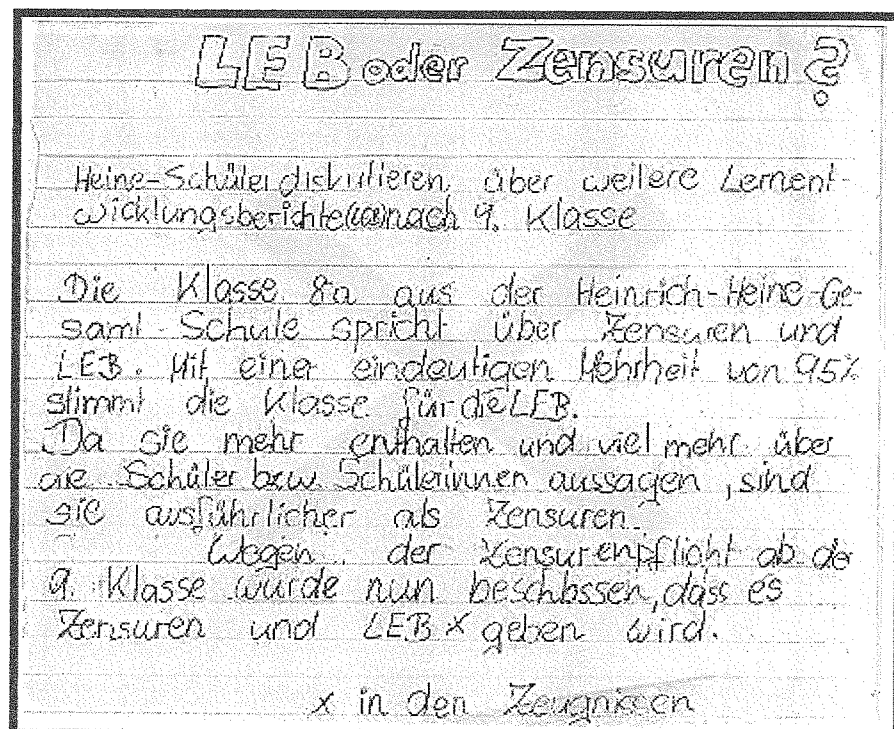 LEB oder Zensuren?
Heine-Schüler diskutieren über weitere Lernent-
wicklungsberichte nach 9. Klasse
Die Klasse 8a aus der Heinrich-Heine-Ge-
samt-Schule spricht über Zensuren und
LEB. Mit einer eindeutigen Mehrheit von 95%
stimmt die Klasse für die LEB.
Da sie mehr enthalten und viel mehr über
die Schüler bzw. Schülerinnen aussagen, sind
sie ausführlicher als Zensuren.
Wegen der Zensurenpflicht ab der
9. Klasse wurde nun beschlossen, dass es
Zensuren und LEB x geben wird.
x in den Zeugnissen